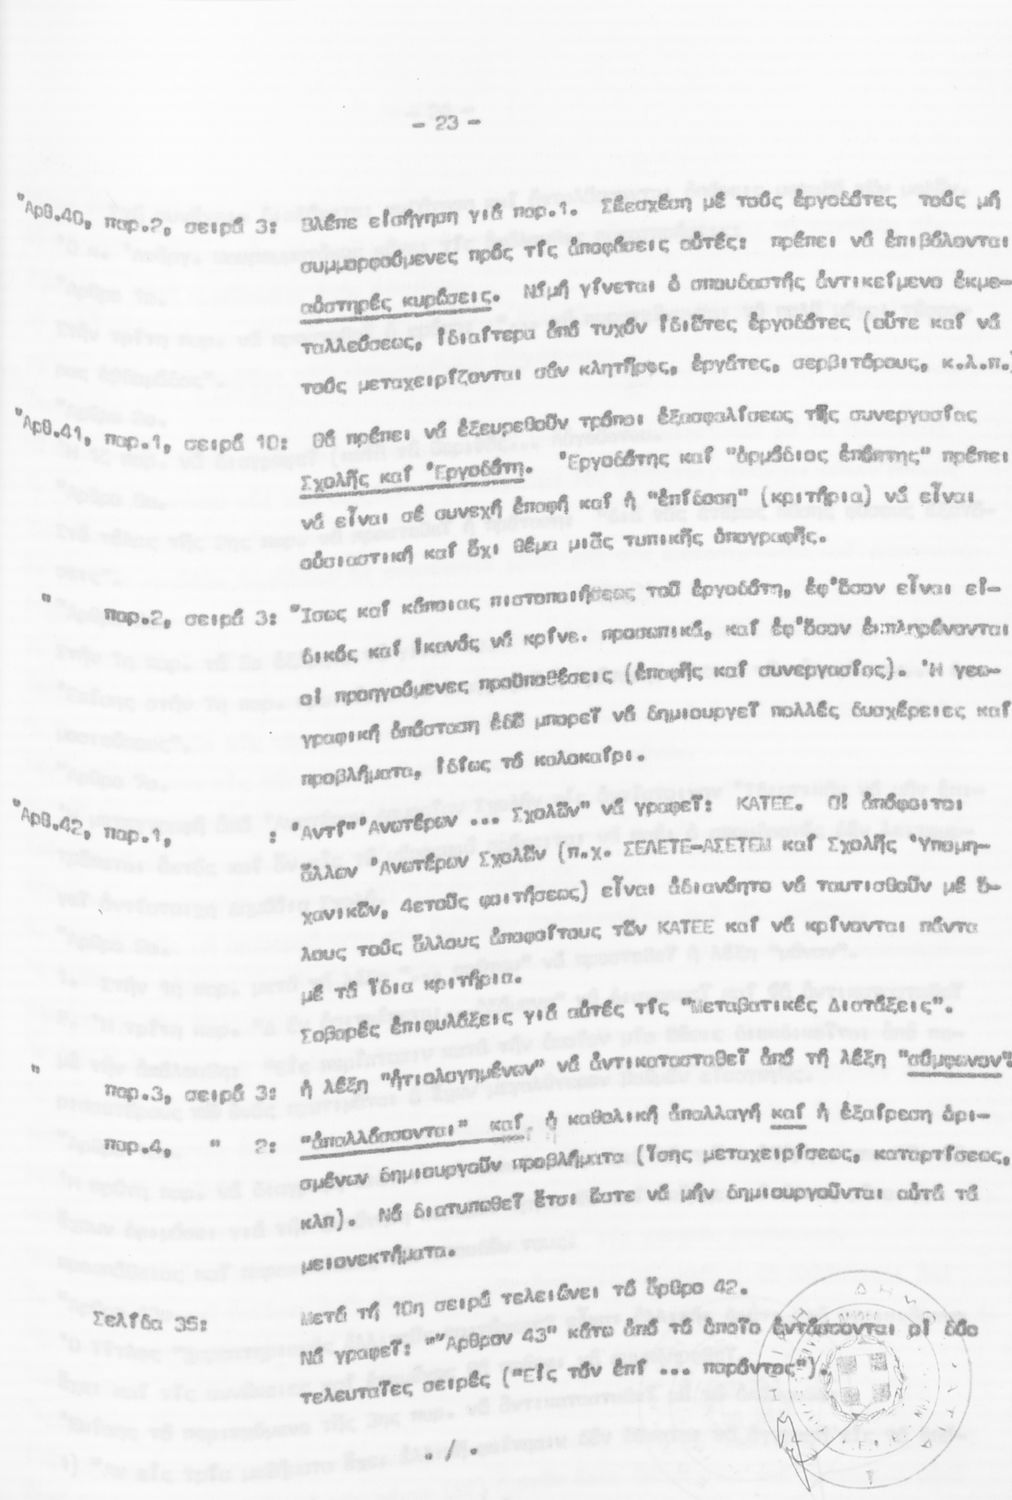 - 23 -
"Αρθ.40, παρ.2, σειρά 3: Βλέπε εἰσήγηση γιά παρ.1. Σέσχέση μέ τούς ἐργοδότες τούς μή
συμμορφούμενες πρός τίς ἀποφάσεις αὐτές: πρέπει νά ἐπιβάλονται
αὐστηρές κυρώσεις. Νά μή γίνεται ὁ σπουδαστής ἀντικείμενο ἐκμε-
ταλλεύσεως, ἰδιαίτερα ἀπό τυχόν ἰδιῶτες ἐργοδότες (οὔτε καί νά
τούς μεταχειρίζονται σάν κλητῆρες, ἐργάτες, σερβιτόρους, κ.λ.π.)
"Αρθ.41, παρ.1, σειρά 10: Θά πρέπει νά ἐξευρεθοῦν τρόποι ἐξασφαλίσεως τῆς συνεργασίας
Σχολῆς καί 'Εργοδότη. 'Εργοδότης καί "ἁρμόδιος ἐπόπτης" πρέπει
νά εἶναι σέ συνεχή ἐπαφή καί ἡ "ἐπίδοση" (κριτήρια) νά εἶναι
οὐσιαστική καί ὄχι θέμα μιᾶς τυπικῆς ὑπογραφῆς.
" παρ.2, σειρά 3: "Ισως καί κάποιας πιστοποιήσεως τοῦ ἐργοδότη, ἐφ'ὅσον εἶναι εἰ-
δικός καί ἱκανός νά κρίνε. προσωπικά, καί ἐφ'ὅσον ἐκπληρώνονται
οἱ προηγούμενες προϋποθέσεις (ἐπαφῆς καί συνεργασίας). 'Η γεω-
γραφική ἀπόσταση ἐδῶ μπορεῖ νά δημιουργεῖ πολλές δυσχέρειες καί
προβλήματα, ἰδίως τό καλοκαίρι.
"Αρθ.42, παρ.1, : 'Αντί" 'Ανωτέρων ... Σχολῶν" νά γραφεῖ: ΚΑΤΕΕ. Οἱ ἀπόφοιτοι
ἄλλων 'Ανωτέρων Σχολῶν (π.χ. ΣΕΛΕΤΕ-ΑΣΕΤΕΜ καί Σχολῆς 'Υπομη-
χανικῶν, 4ετοῦς φοιτήσεως) εἶναι ἀδιανόητο νά ταυτισθοῦν μέ ὅ-
λους τούς ἄλλους ἀποφοίτους τῶν ΚΑΤΕΕ καί νά κρίνονται πάντα
μέ τά ἴδια κριτήρια.
Σοβαρές ἐπιφυλάξεις γιά αὐτές τίς "Μεταβατικές Διατάξεις".
" παρ.3, σειρά 3: ἡ λέξη "ἠτιολογημένων" νά ἀντικατασταθεῖ ἀπό τή λέξη "σύμφωνων".
παρ.4, " 2: "ἀπαλλάσσονται" καί, ἡ καθολική ἀπαλλαγή καί ἡ ἐξαίρεση ὁρι-
σμένων δημιουργοῦν προβλήματα (ἴσης μεταχειρίσεως, καταρτίσεως,
κλπ). Νά διατυπωθεῖ ἔτσι ὥστε νά μήν δημιουργοῦνται αὐτά τά
μειονεκτήματα.
Σελίδα 35: Μετά τή 10η σειρά τελειώνει τό ἄρθρο 42.
Νά γραφεῖ: ""Αρθρον 43" κάτω ἀπό τό ὁποῖο ἐντάσσονται οἱ δύο
τελευταῖες σειρές ("Εἰς τόν ἐπί ... παρόντος").
./.